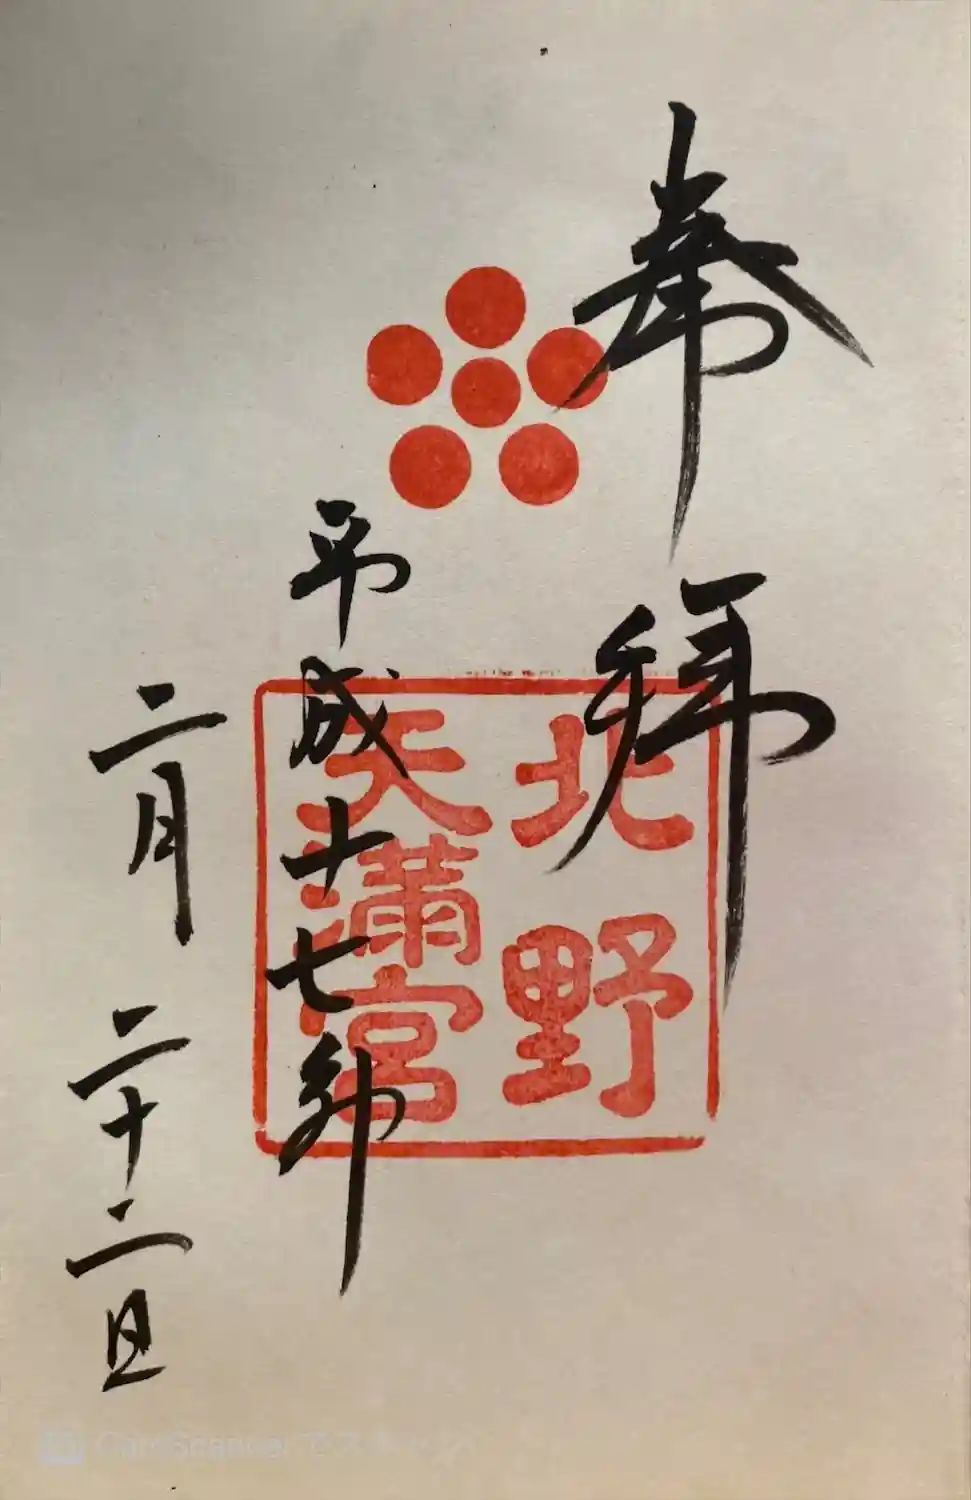 奉拝
北野
天満宮
平成十七年
二月二十二日
CamScannerでスキャン